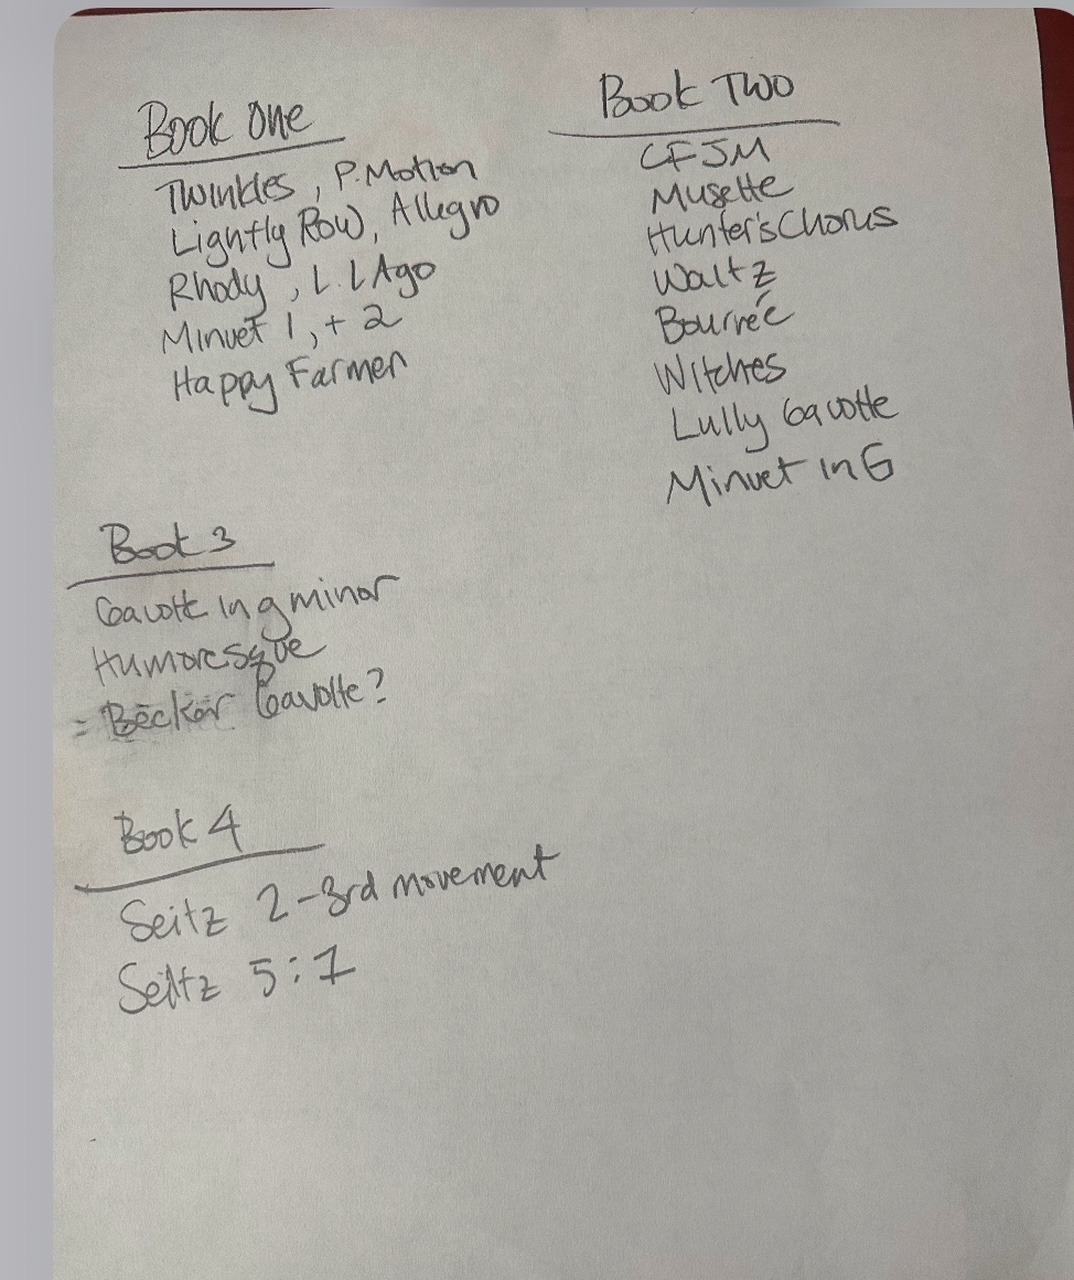 Book One
Twinkles, P. Motion
Lightly Row, Allegro
Rhody, L. L Ago
Minuet 1, + 2
Happy Farmer
Book Two
CFJM
Musette
Hunter's Chorus
Waltz
Bourrée
Witches
Lully Gavotte
Minuet in G
Book 3
Gavotte in g minor
Humoresque
Becker Gavotte?
Book 4
Seitz 2-3rd movement
Seitz 5:1